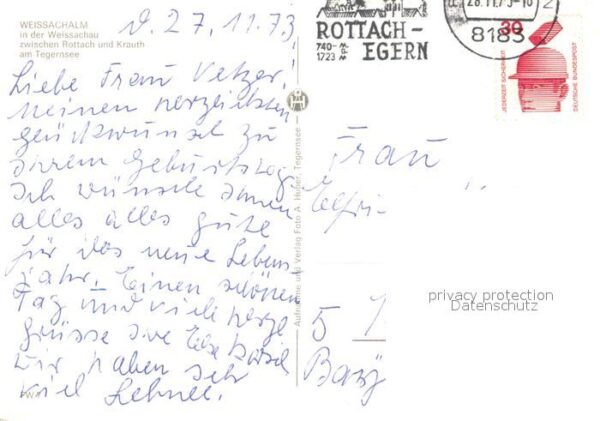 WEISSACHALM
in der Weissachau
zwischen Rottach und Kreuth
am Tegernsee
d. 27.11.73
Liebe Frau Vetzer!
Meinen herzlichsten
Glückwunsch zu
Ihrem Geburtstag.
Ich wünsche Ihnen
alles alles gute
für das neue Lebens-
jahr. Einen schönen
Tag und viele herzl
Grüsse Ihre
Wir haben sehr
viel Schnee.
Aufnahme und Verlag Foto A. Huber, Tegernsee
ROTTACH-
EGERN
740-
1723
28.11.73-10
8183
2
30
JEDERZEIT SICHERHEIT
DEUTSCHE BUNDESPOST
Frau
Elfri-
5
privacy protection
Datenschutz